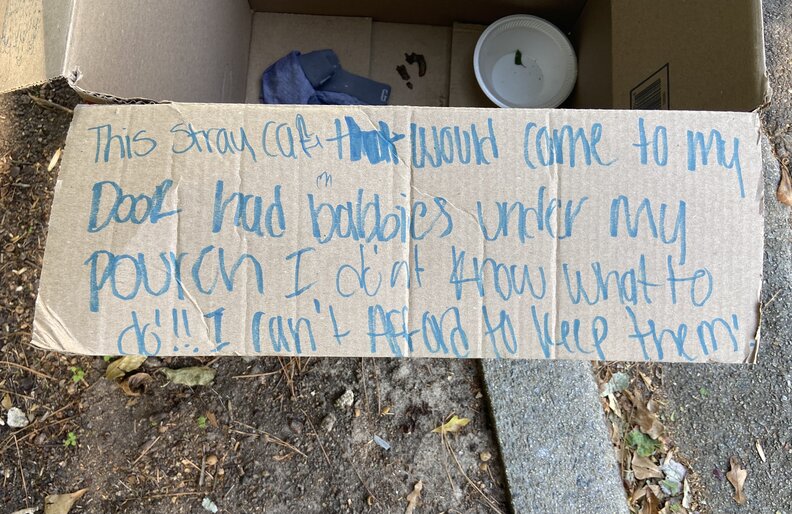 This stray cat that would come to my
Door had babbies under my
pourch I do'nt know what to
do!!! I can't Afford to keep them